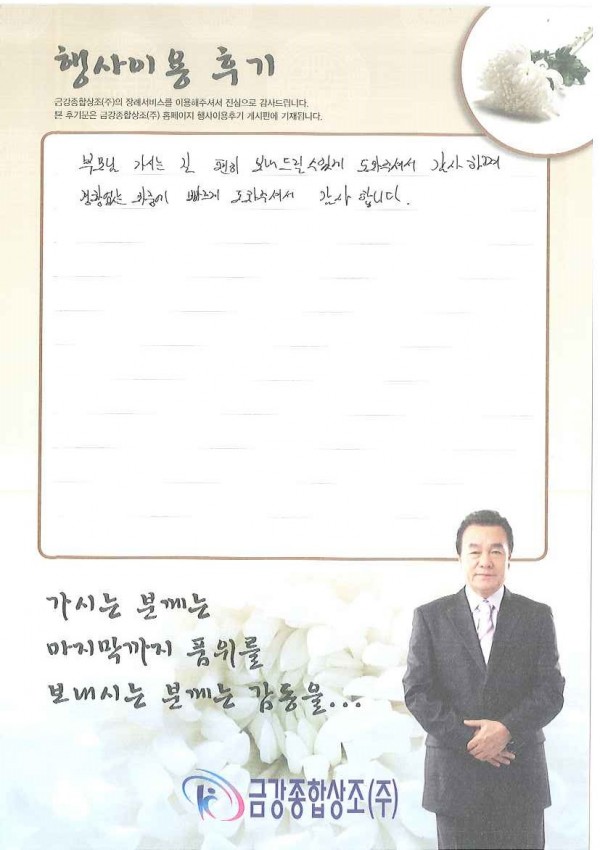 행사이용 후기
금강종합상조(주)의 장례서비스를 이용해주셔서 진심으로 감사드립니다.
본 후기문은 금강종합상조(주) 홈페이지 행사이용후기 게시판에 기재됩니다.
부모님 가시는 길 편히 보내드릴수있게 도와주셔서 감사하며
경황없는 와중에 빠르게 도와주셔서 감사합니다.
가시는 분께는
마지막까지 품위를
보내시는 분께는 감동을...
금강종합상조(주)